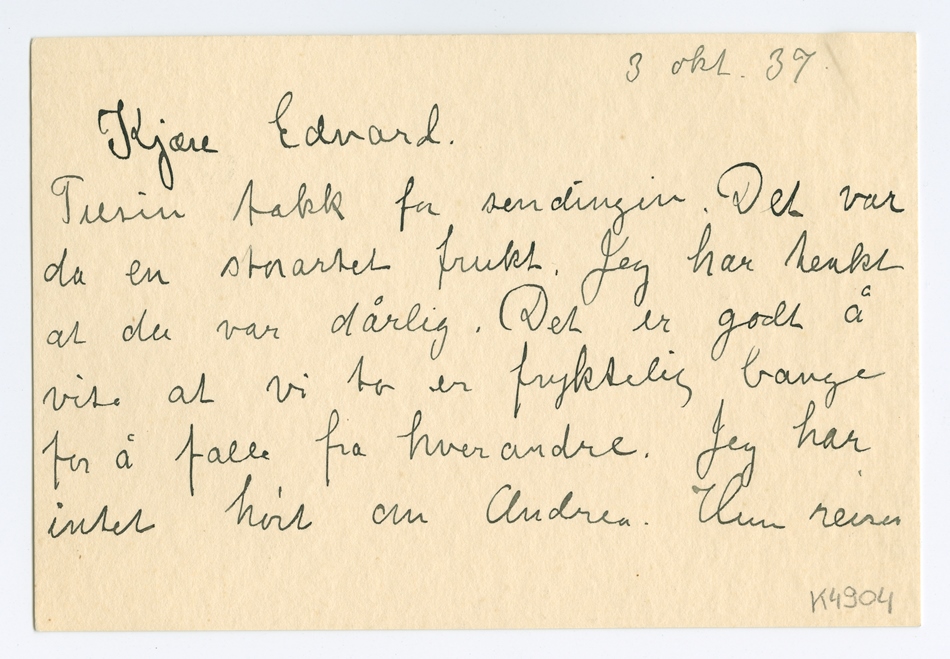 3 okt. 37.
Kjære Edvard.
Tusin takk for sendingin. Det var
da en storartet frukt. Jeg har tenkt
at du var dårlig. Det er godt å
vite at vi to er fryktelig bange
for å falle fra hverandre. Jeg har
intet hört om Andrea. Hun reiser
K4904